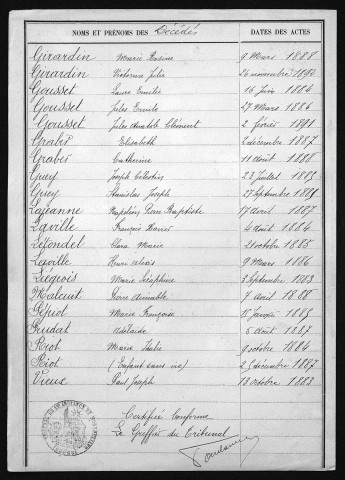 NOMS ET PRÉNOMS DES Décédés DATES DES ACTES
Girardin Marie Rosine 9 Mars 1888
Girardin Victorine Julie 26 novembre 1890
Gousset Laure Emilie 16 Juin 1884
Gousset Jules Emile 27 Mars 1886
Gousset Jules Anatole Clément 2 février 1891
Graber Elisabeth 3 décembre 1887
Graber Catherine 11 août 1888
Guey Joseph Célestin 23 juillet 1885
Guey Stanislas Joseph 27 Septembre 1885
Lajeanne Napoléon Pierre Baptiste 17 avril 1887
Laville François Xavier 4 août 1884
Lefondel Clara Marie 21 octobre 1885
Laville Henri 9 Mars 1886
Liégeois Marie Séraphine 3 Septembre 1883
Malcuit Pierre Aimable 7 avril 1888
Pépiot Marie Françoise 15 Janvier 1885
Prudat Adélaïde 5 août 1887
Riot Marie 9 octobre 1884
Riot (Enfant sans vie) 25 décembre 1887
Vieux Paul Joseph 18 octobre 1883
Certifiée Conforme
Le Greffier du Tribunal